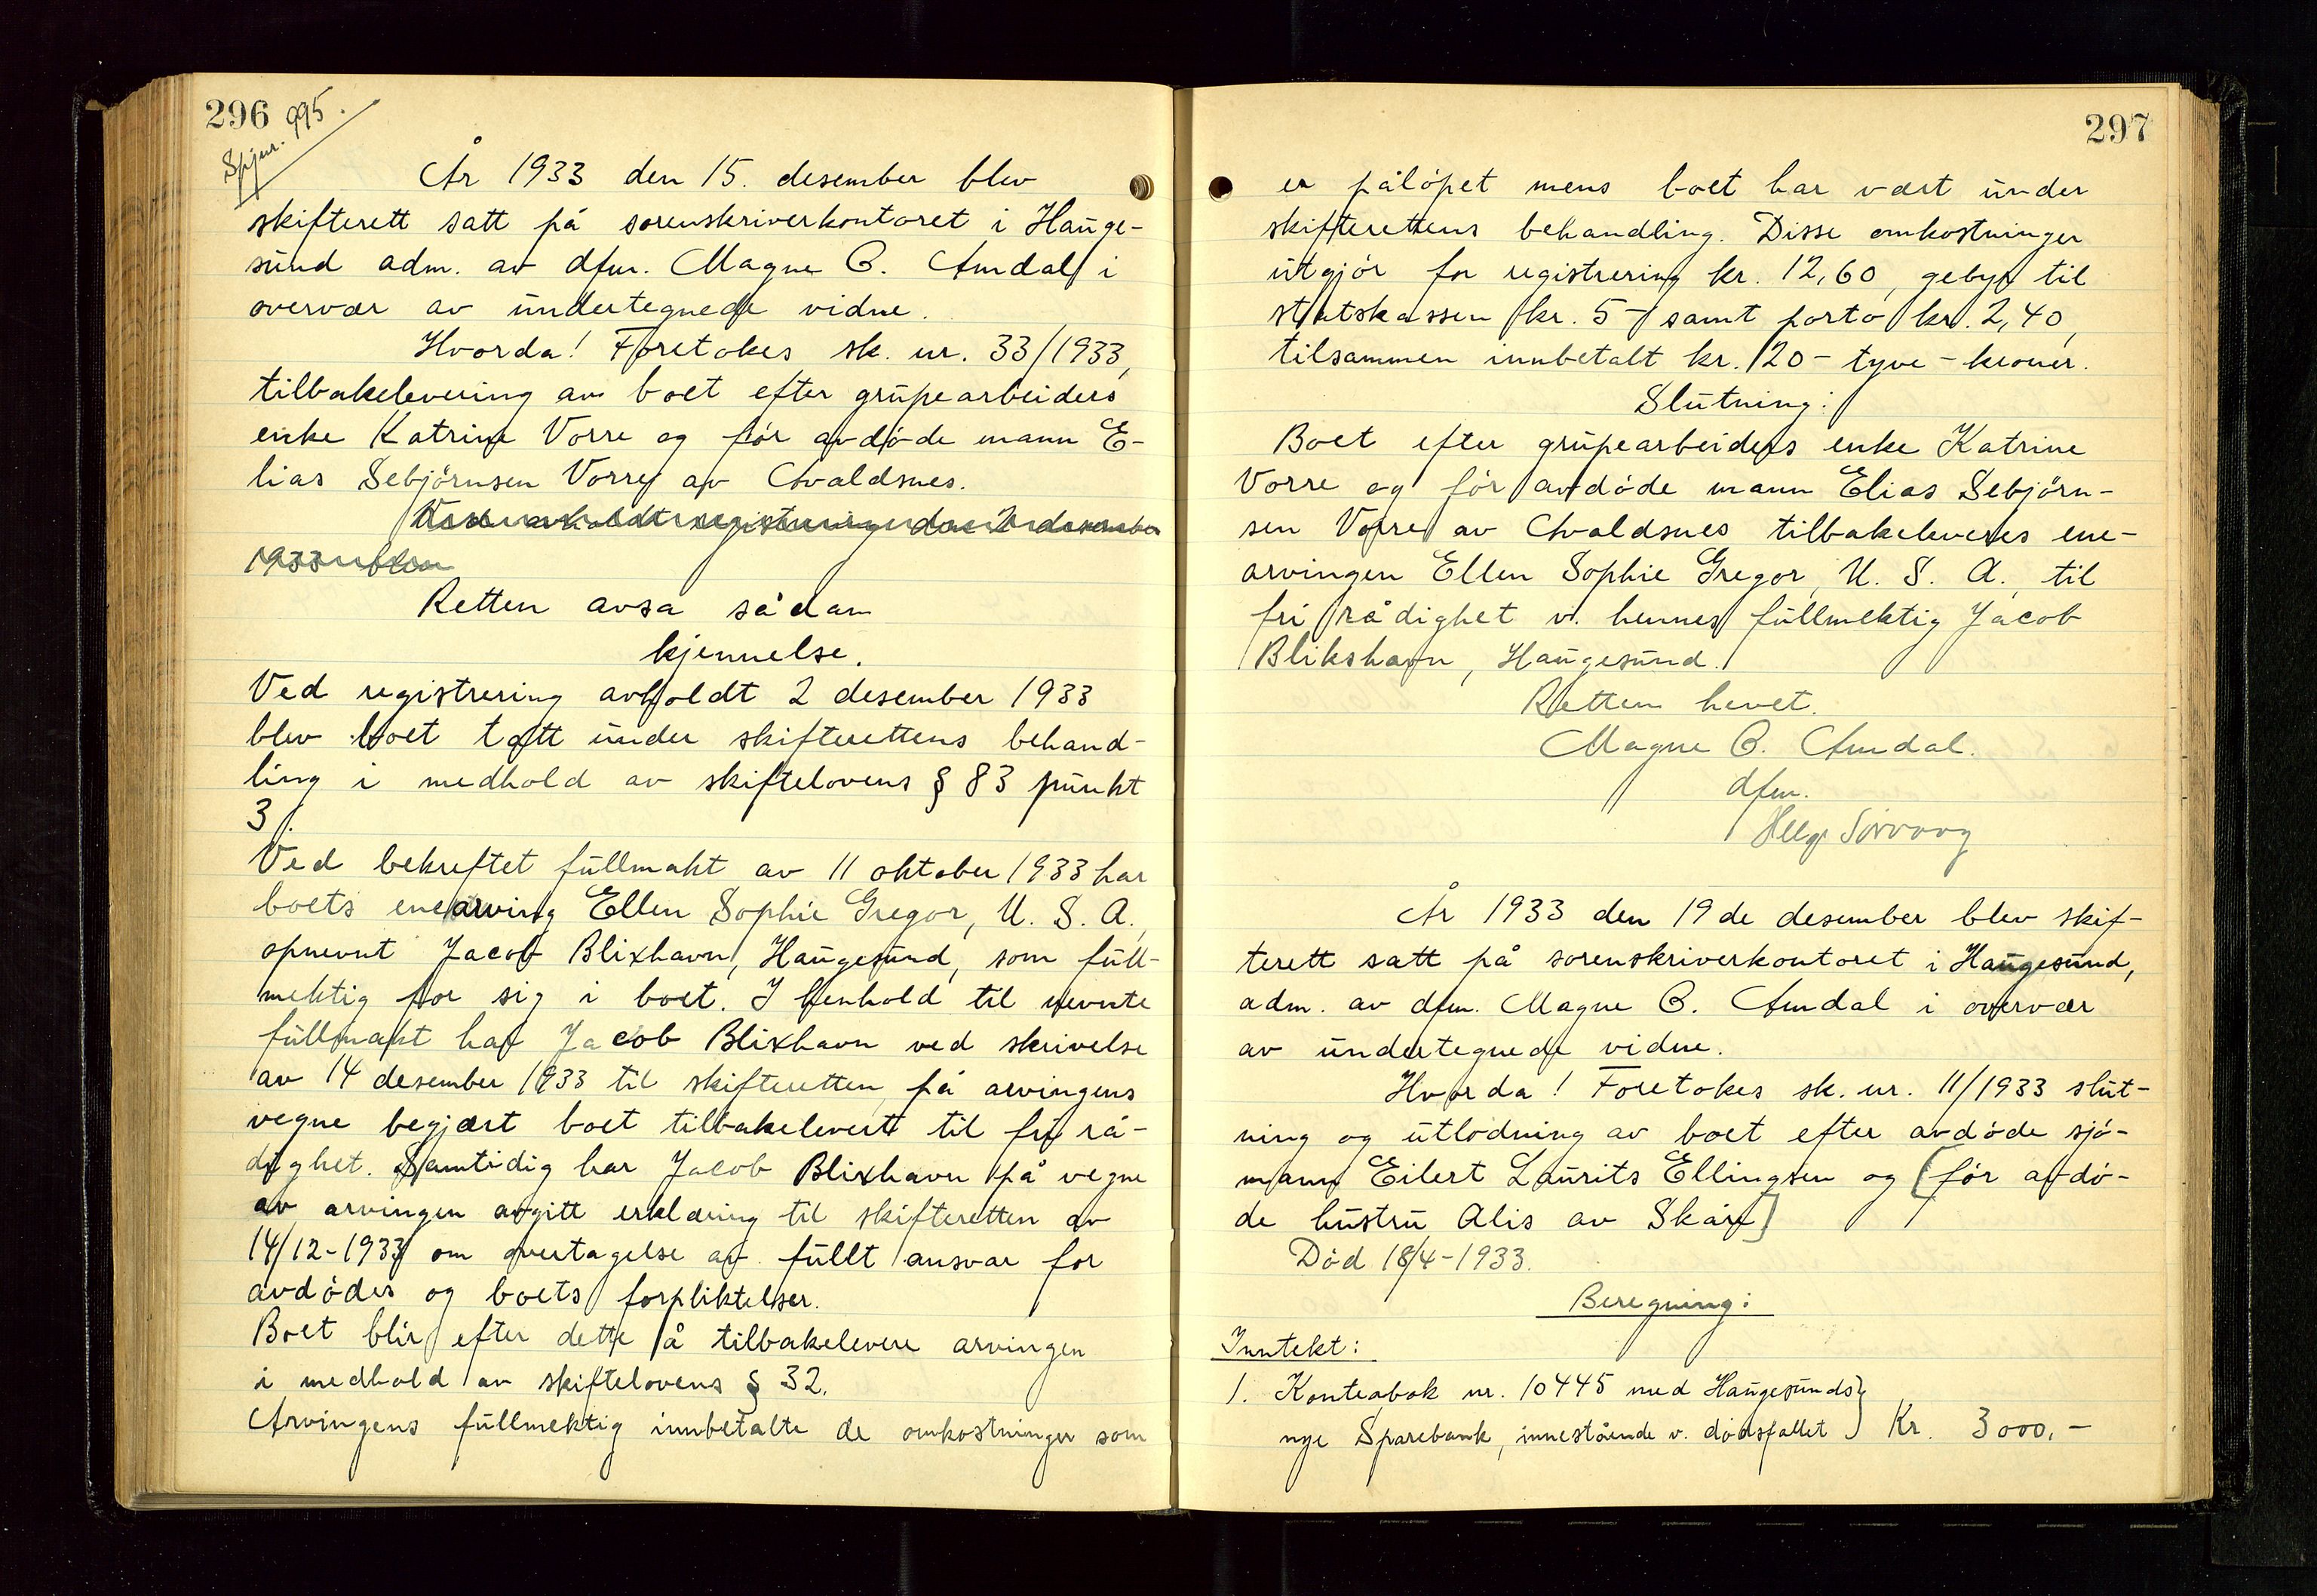 296
995.
Spjnr.
År 1933 den 15. desember blev
skifterett satt på sorenskriverkontoret i Hauge-
sund adm. av dfm. Magne B. Amdal i
overvær av undertegnede vidne.
Hvorda! Foretokes sk. nr. 33/1933,
tilbakelevering av boet efter grupearbeiders
enke Katrine Vorre og før avdøde mann E-
lias Sebjørnsen Vorre av Avaldsnes.
1933 blev
Retten avsa sådan
kjennelse.
Ved registrering avholdt 2 desember 1933
blev boet tatt under skifterettens behand-
ling i medhold av skiftelovens § 83 punkt
3.
Ved bekreftet fullmakt av 11 oktober 1933 har
boets enearving Ellen Sophie Gregor, U. S. A.,
opnevnt Jacob Blixhavn, Haugesund, som full-
mektig for sig i boet. I henhold til nevnte
fullmakt har Jacob Blixhavn ved skrivelse
av 14 desember 1933 til skifteretten på arvingens
vegne begjært boet tilbakelevert til fri rå-
dighet. Samtidig har Jacob Blixhavn på vegne
av arvingen avgitt erklæring til skifteretten av
14/12-1933 om overtagelse av fullt ansvar for
avdødes og boets forpliktelser.
Boet blir efter dette å tilbakelevere arvingen
i medhold av skiftelovens § 32.
Arvingens fullmektig innbetalte de omkostninger som
297
er påløpet mens boet har vært under
skifterettens behandling. Disse omkostninger
utgjør for registrering kr. 12,60, gebyr til
statskassen kr. 5- samt porto kr. 2,40,
tilsammen innbetalt kr. 20 - tyve - kroner.
Slutning:
Boet efter grupearbeiders enke Katrine
Vorre og før avdøde mann Elias Sebjørn-
sen Vorre av Avaldsnes tilbakeleveres ene-
arvingen Ellen Sophie Gregor, U. S. A., til
fri rådighet v. hennes fullmektig Jacob
Blikshavn, Haugesund.
Retten hevet.
Magne B. Amdal.
dfm.
Helge
År 1933 den 19de desember blev skif-
terett satt på sorenskriverkontoret i Haugesund,
adm. av dfm. Magne B. Amdal i overvær
av undertegnede vidne.
Hvorda! Foretokes sk. nr. 11/1933 slut-
ning og utlodning av boet efter avdøde sjø-
mann Eilert Laurits Ellingsen og [før avdø-
de hustru Alis av Skåre]
Død 18/4-1933.
Beregning:
Inntekt:
1. Konteabok nr. 10445 med Haugesunds
nye Sparebank, innestående v. dødsfallet } Kr. 3000,-